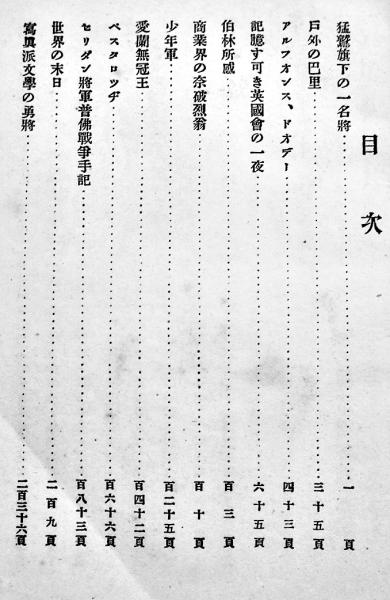 目次
猛鷲旗下の一名將 一頁
戸外の巴里 三十五頁
アルフオンス、ドオデー 四十三頁
記臆す可き英國會の一夜 六十五頁
伯林所感 百三頁
商業界の奈破烈翁 百十頁
少年軍 百二十五頁
愛蘭無冠王 百四十二頁
ペスタロツヂ 百六十六頁
セリダン將軍普佛戰爭手記 百八十三頁
世界の末日 二百九頁
寫眞派文學の勇將 二百三十六頁